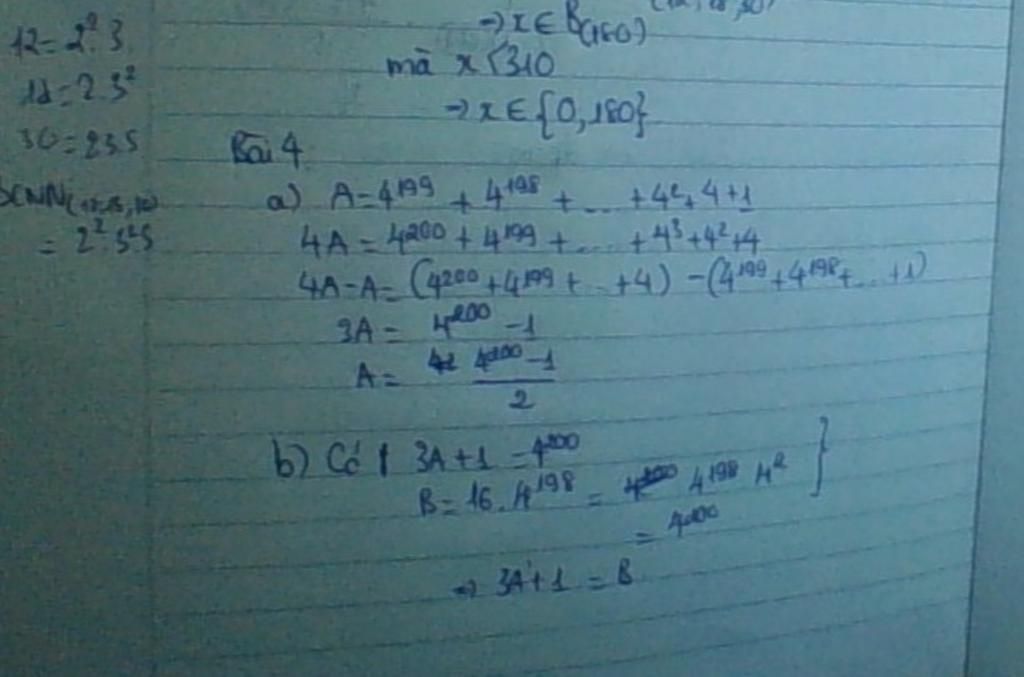 12 = 2².3
18 = 2.3²
30 = 2.3.5
BCNN(12,18,30)
= 2².3².5
→ x ∈ B(180)
mà x < 310
→ x ∈ {0, 180}
Bài 4
a) A = 4¹⁹⁹ + 4¹⁹⁸ + ... + 4² + 4 + 1
4A = 4²⁰⁰ + 4¹⁹⁹ + ... + 4³ + 4² + 4
4A - A = (4²⁰⁰ + 4¹⁹⁹ + ... + 4) - (4¹⁹⁹ + 4¹⁹⁸ + ... + 1)
3A = 4²⁰⁰ - 1
A = 4²⁰⁰ - 1
2
b) Có 3A + 1 = 4²⁰⁰
B = 16 . 4¹⁹⁸ = 4¹⁹⁸ 4² }
= 4²⁰⁰
→ 3A + 1 = B